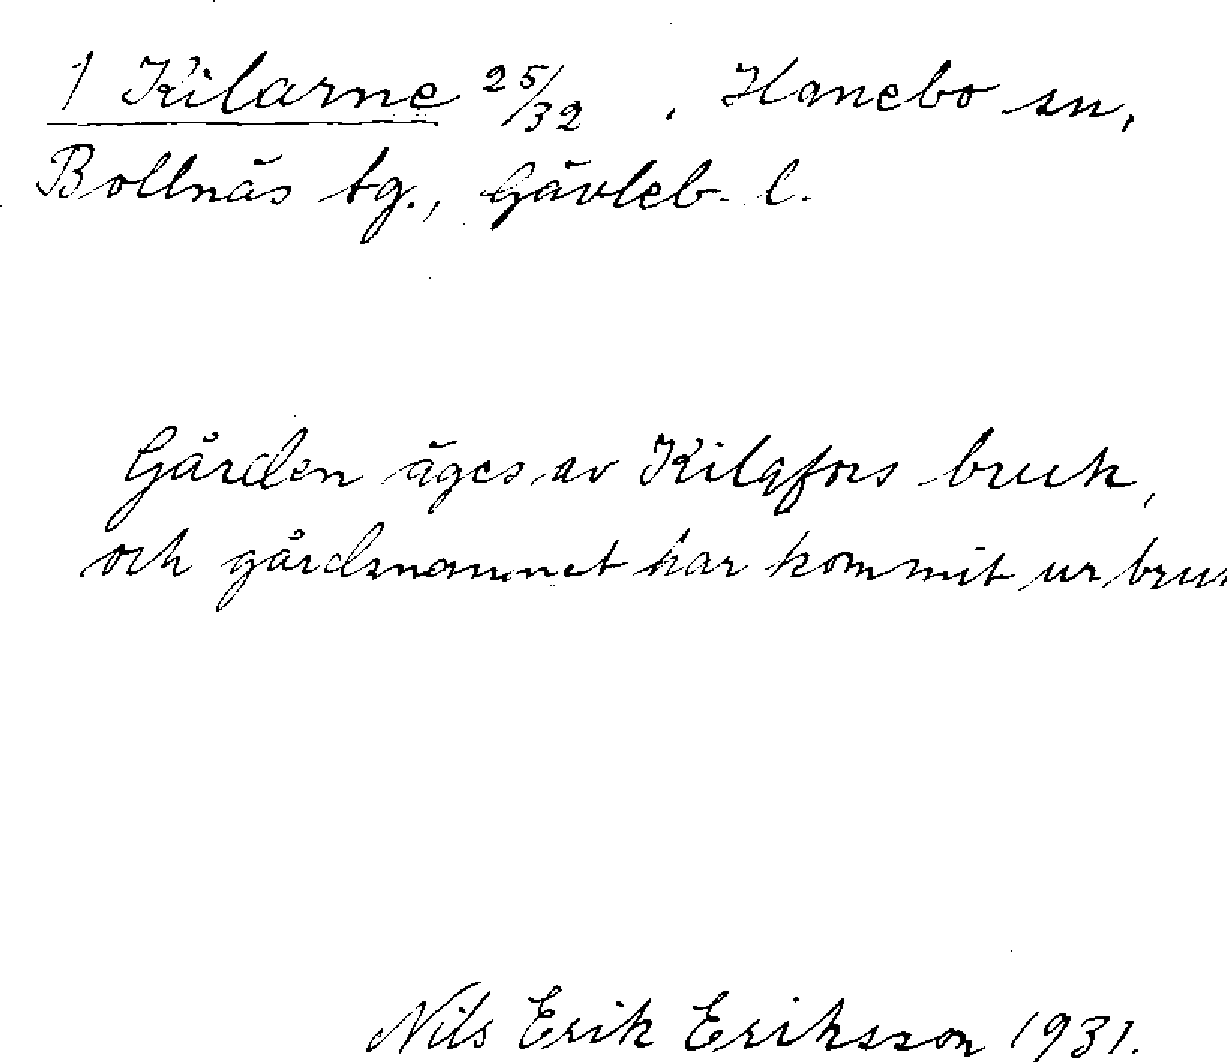 1 Kilarne 25/32, Hanebo sn,
Bollnäs tg., Gävleb. l.
Gården äges av Kilafors bruk,
och gårdsnamnet har kommit ur
Nils Erik Eriksson 1931.